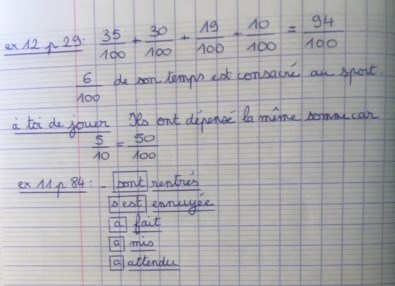 ex 12 p 29: 35/100 + 30/100 + 19/100 + 10/100 = 94/100
6/100 de son temps est consacré au sport.
à toi de jouer Ils ont dépensé la même somme car
5/10 = 50/100
ex 11 p 84: - sont rentrés
s'est ennuyée
a fait
a mis
a attendu